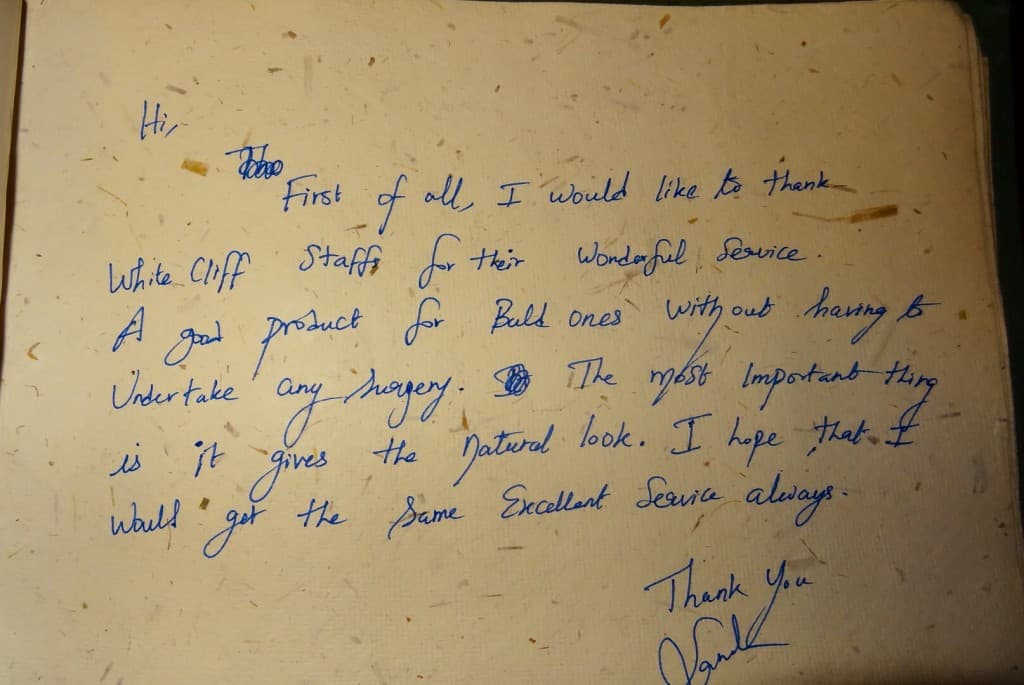 Hi,
First of all, I would like to thank
White Cliff Staffs for their Wonderful Service.
A good product for Bald ones without having to
Undertake any surgery. The most Important thing
is it gives the Natural look. I hope that I
Would get the Same Excellent Service always.
Thank You